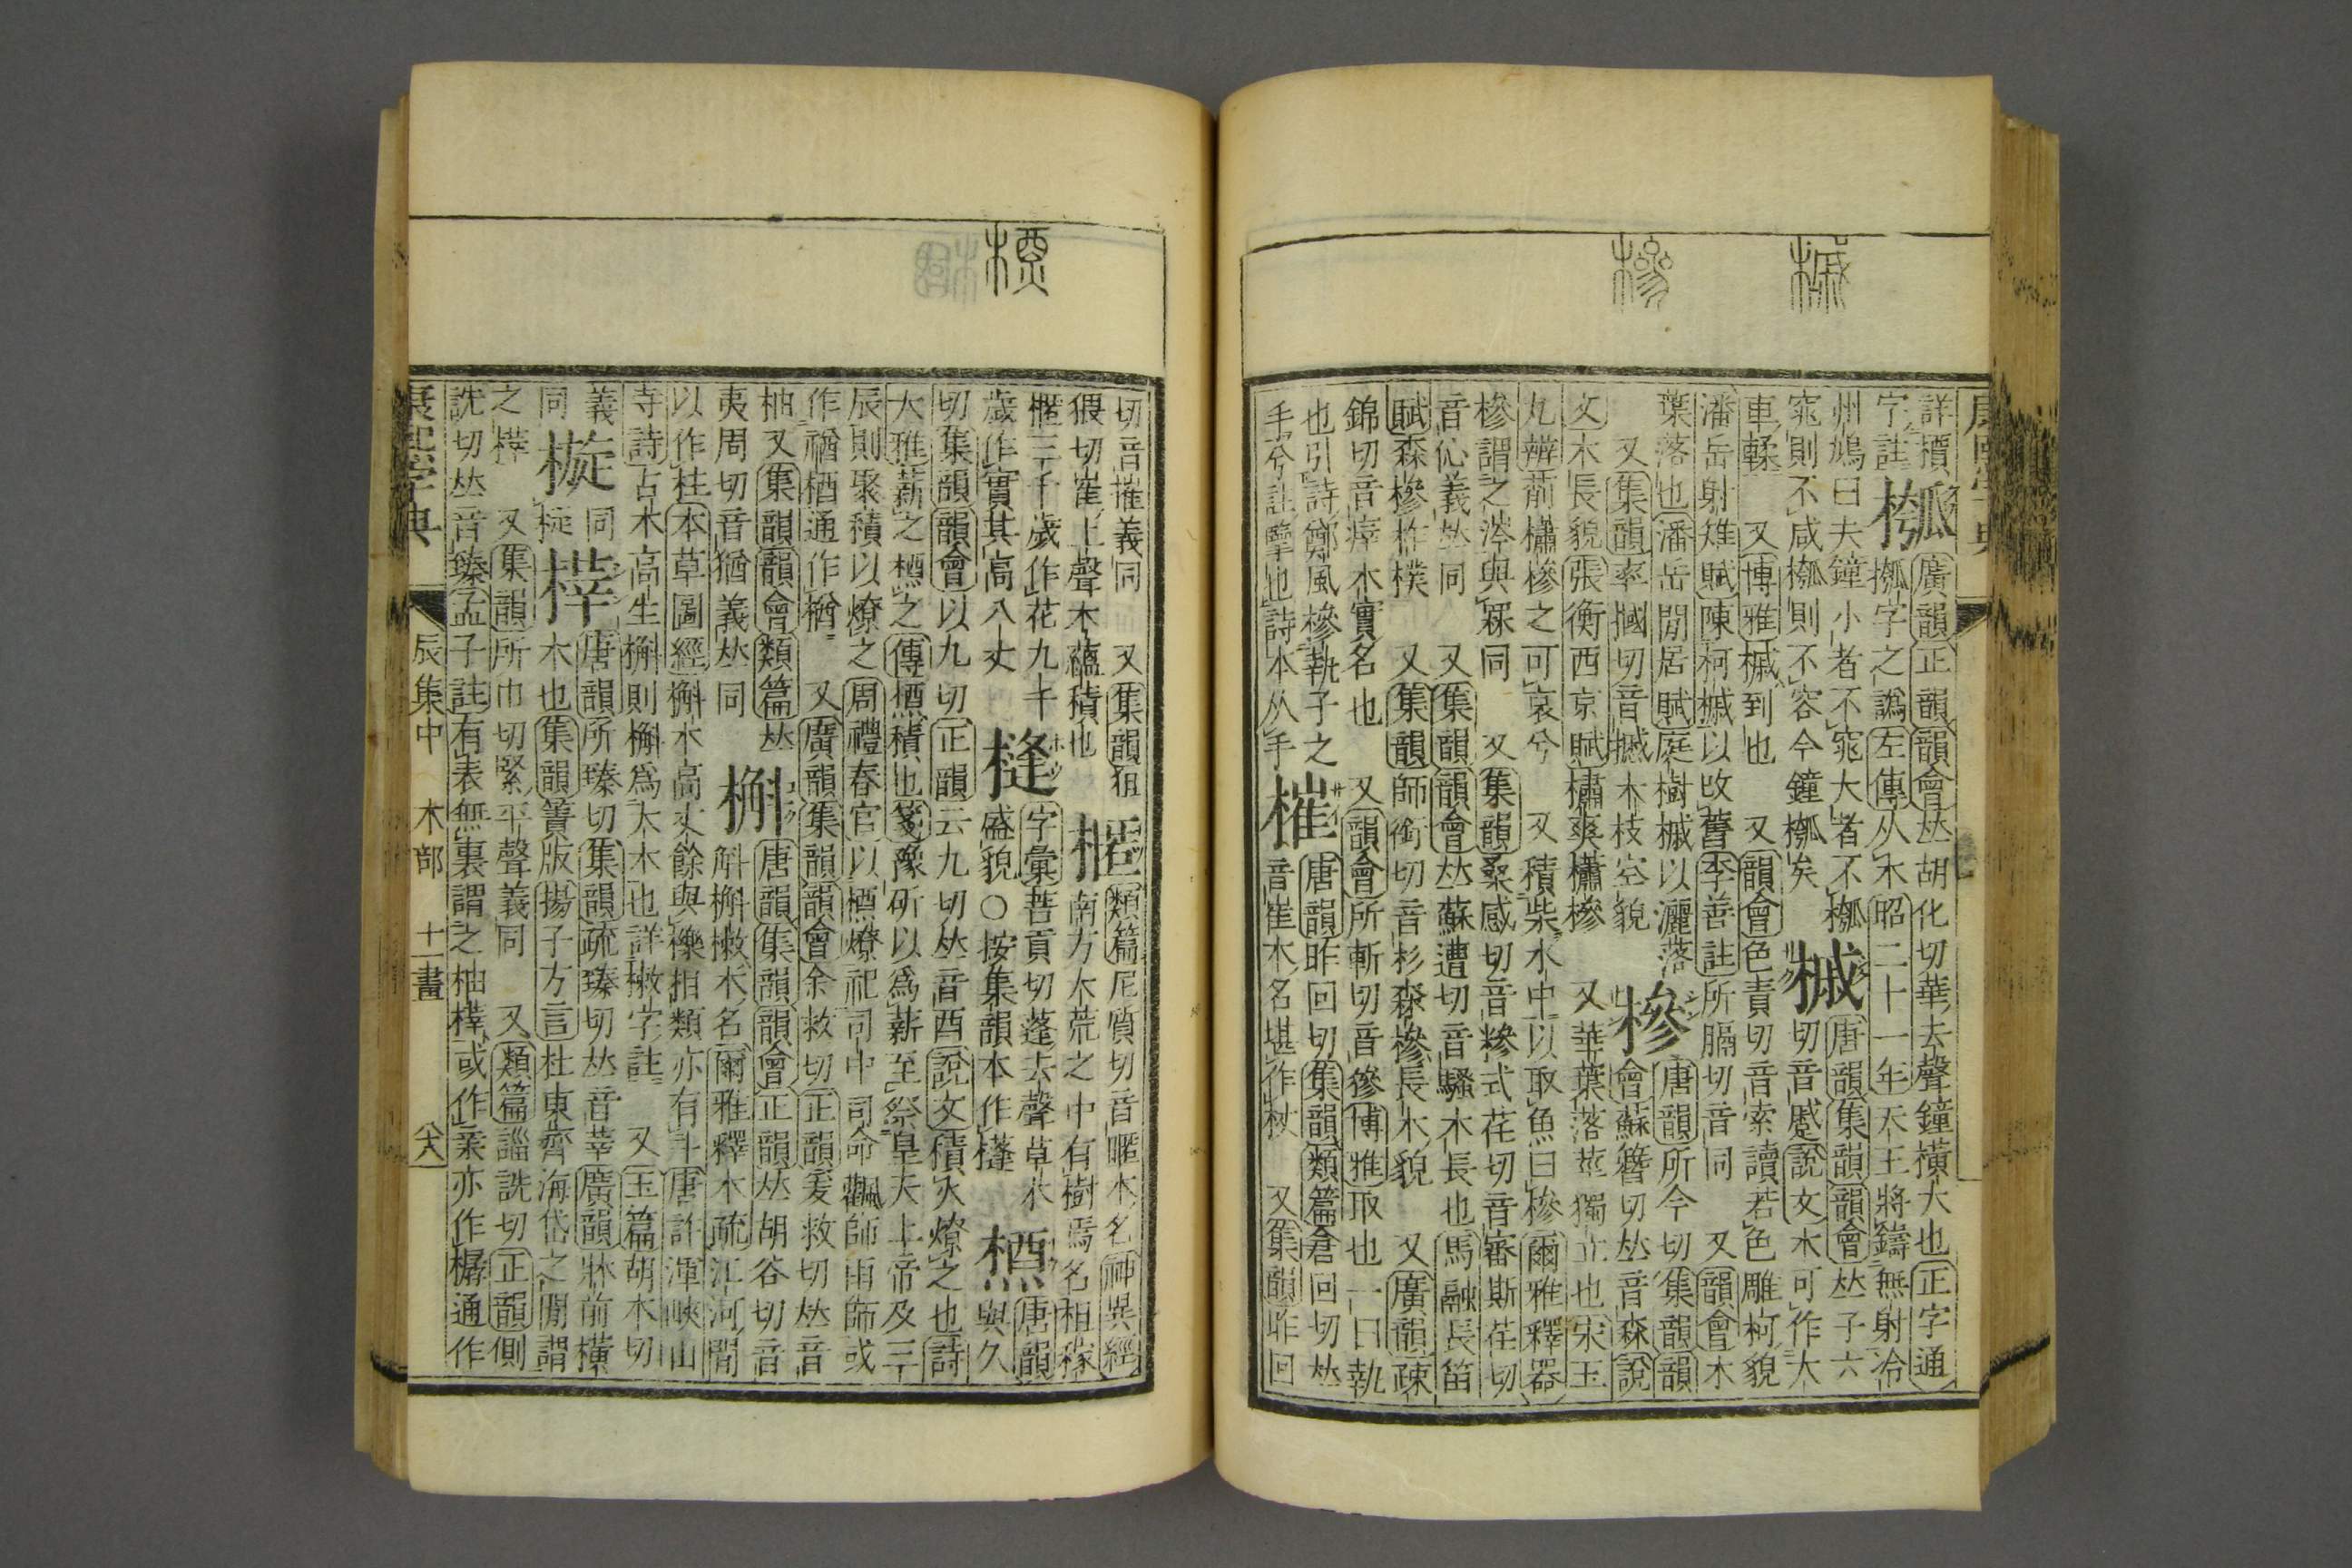 槭
槮
字典
詳
廣韻正韻韻會𠀤胡化切華去聲鐘橫大也正字通
字註
槬字之譌左傳从木昭二十一年天王將鑄無射泠
州鳩曰夫鐘小者不窕大者不槬 槭 唐韻集韻韻會𠀤子六
窕則不咸槬則不容今鐘槬矣 切音蹙說文木可作大
車輮 又博雅槭到也 又韻會色責切音索讀若色雕柯貌
潘岳射雉賦陳柯槭以改舊李善註所膈切音同 又韻會木
葉落也潘岳閒居賦庭樹槭以灑落 槮 唐韻所今切集韻韻
又集韻率摑切音摵木枝空貌 會蘇簪切𠀤音森說
文木長貌張衡西京賦橚爽櫹槮 又華葉落莖獨立也宋玉
九辨萷櫹槮之可哀兮 又積柴水中以取魚曰槮爾雅釋器
槮謂之涔與罧同 又集韻桑感切音糝式荏切音審斯荏切
音伈義𠀤同 又集韻韻會𠀤蘇遭切音騷木長也馬融長笛
賦森槮柞樸 又集韻師銜切音杉森槮長木貌 又廣韻疎
錦切音瘁木實名也 又韻會所斬切音摻博雅取也一曰執
也引詩鄭風槮執子之 槯 唐韻昨回切集韻類篇倉回切𠀤
手兮註擥也詩本从手 音崔木名堪作杖 又集韻昨回
槱
切音摧義同 又集韻狙 槶 類篇尼質切音暱木名神異經
猥切崔上聲木蘊積也 南方大荒之中有樹焉名柤稼
櫃三千歲作花九千 槰 字彙菩貢切蓬去聲草木
歲作實其高八丈 盛貌○按集韻本作㯁 槱 唐韻
切集韻韻會以九切正韻云九切𠀤音酉說文積火燎之也詩
與久
大雅薪之槱之傳槱積也箋豫斫以爲薪至祭皇天上帝及三
辰則聚積以燎之周禮春官以槱燎祀司中司命飌師雨師或
作禉楢通作猶 又廣韻集韻韻會余救切正韻爰救切𠀤音
柚又集韻韻會類篇𠀤 槲 唐韻集韻韻會正韻𠀤胡谷切音
夷周切音猶義𠀤同 斛槲樕木名爾雅釋木疏江河閒
以作柱本草圖經槲木高丈餘與櫟相類亦有斗唐許渾峽山
寺詩古木高生槲則槲爲大木也詳樕字註 又玉篇胡木切
義同 榟 唐韻所臻切集韻疏臻切𠀤音莘廣韻牀前橫
同 椗 木也集韻簀版揚子方言杜東齊海岱之閒謂
之榟 又集韻所巾切緊平聲義同 又類篇詣詵切正韻側
詵切𠀤音臻孟子註有表無裏謂之柚榟或作亲亦作樼通作
康熙字典 辰集中 木部 十一畫